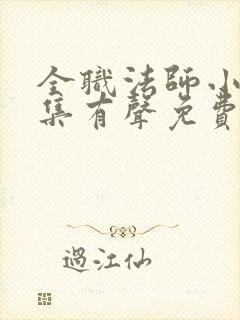 全職法師小
集有聲免費
過江仙